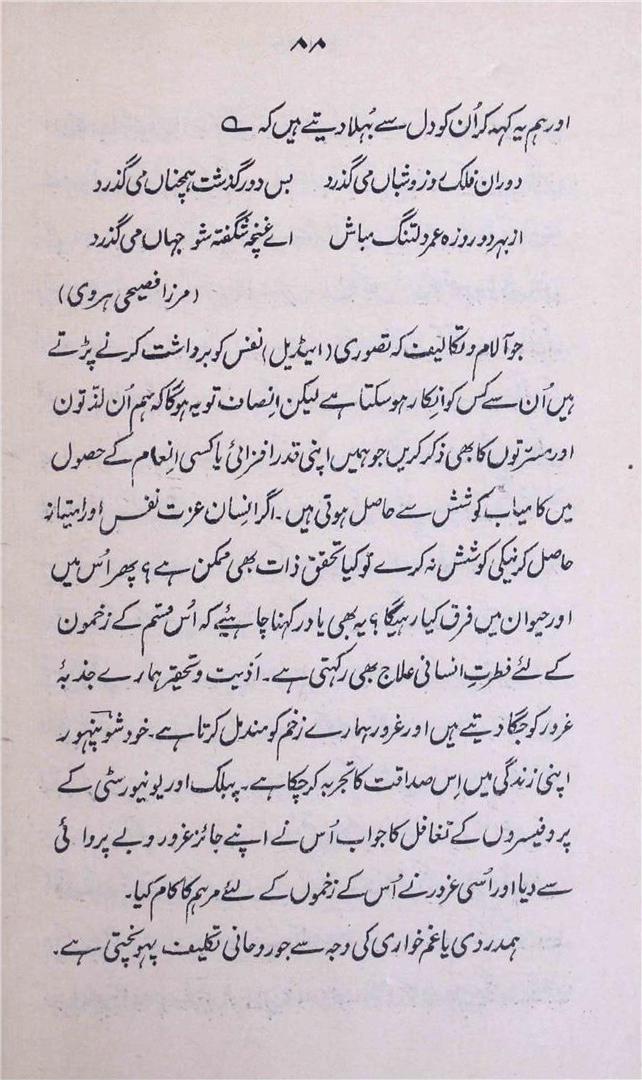 ۸۸
اور ہم یہ کہہ کر اُن کو دل سے بُہلا دیتے ہیں کہ ؎
دوران فلک روز و شباں می گذرد بس دور گذشت ہمچناں می گذرد
از بہر دو روزہ عمر دلتنگ مباش اے غنچہ شگفتہ شو جہاں می گذرد
(مرزا فصیحی ہروی)
جو آلام و تکالیف کہ تصوری (ائیڈیل) نفس کو برداشت کرنے پڑتے
ہیں اُن سے کس کو انکار ہو سکتا ہے لیکن انصاف تو یہ ہوگا کہ ہم اُن لذتون
اور مسرتوں کا بھی ذکر کریں جو ہمیں اپنی قدر افزائی یا کسی انعام کے حصول
میں کامیاب کوشش سے حاصل ہوتی ہیں۔ اگر انسان عزت نفس اور امتیاز
حاصل کرنیکی کوشش نہ کرے تو کیا تحقق ذات بھی ممکن ہے؟ پھر اُس میں
اور حیوان میں فرق کیا رہیگا؟ یہ بھی یاد رکہنا چاہیئے کہ اُس قسم کے زخمون
کے لئے فطرتِ انسانی علاج بھی رکہتی ہے۔ اَذیت و تحقیر ہمارے جذبۂ
غرور کو جگا دیتے ہیں اور غرور ہمارے زخم کو مندمل کرتا ہے۔ خود شوپنہور
اپنی زندگی میں اِس صداقت کا تجربہ کر چکا ہے۔ پبلک اور یونیورسٹی کے
پروفیسروں کے تغافل کا جواب اُس نے اپنے جائز غرور و بے پروائی
سے دیا اور اُسی غرور نے اُس کے زخموں کے لئے مرہم کا کام کیا۔
ہمدردی یا غم خواری کی وجہ سے جو روحانی تکلیف پہونچتی ہے۔